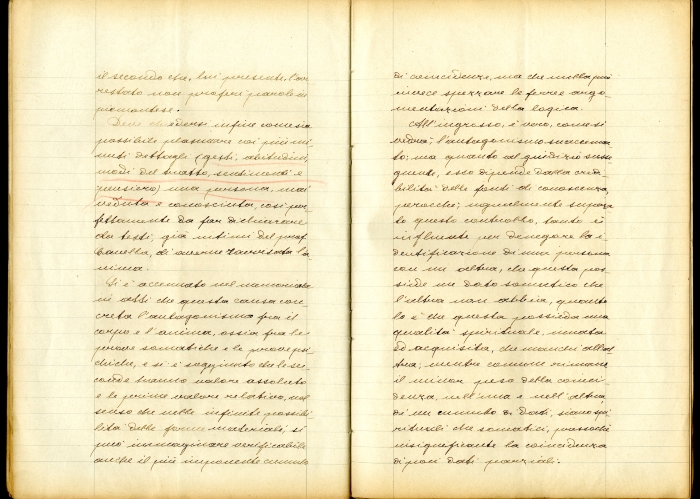 il secondo che, lui presente, l'ar
restato non proferì parole in
piemontese.
Deve chiedersi infine come sia
possibile plasmare coi più mi
nuti dettagli (gesti, abitudini,
modi del tratto, sentimenti e
pensiero) una persona, mai
veduta e conosciuta, così per
fettamente da far dichiarare
da testi, già intimi del prof.
Canella, di averne ravvisata l'a
nima.
Si è accennato nel memoriale
in atti che questa causa con
creta l'antagonismo fra il
corpo e l'anima, ossia fra le
prove somatiche e le prove psi
chiche, e si è soggiunto che le se
conde hanno valore assoluto
e le prime valore relativo, nel
senso che nelle infinite possibi
lità delle forme materiali si
può immaginare verificabile
anche il più imponente cumulo
di coincidenze, ma che nulla può
invece spezzare le ferree argo
mentazioni della logica.
All'ingresso, è vero, come si
vedrà, l'antagonismo
to; ma quanto al giudizio susse
guente, esso dipende dalla credi
bilità delle fonti di conoscenza,
perocchè, ugualmente suppos
te questo controllo, tanto è
influente per denegare la i
dentificazione di una persona
con un'altra, che questa pos
sieda un dato somatico che
l'altra non abbia, quanto
lo è che questa possieda una
qualità spirituale, innata
od acquisita, che manchi all'al
tra, mentre comune rimane
il minor peso della coinci
denza, nell'una e nell'altra,
di un cumulo di dati, siano spi
rituali che somatici, possochè
insignificante la coincidenza
di pochi dati parziali.